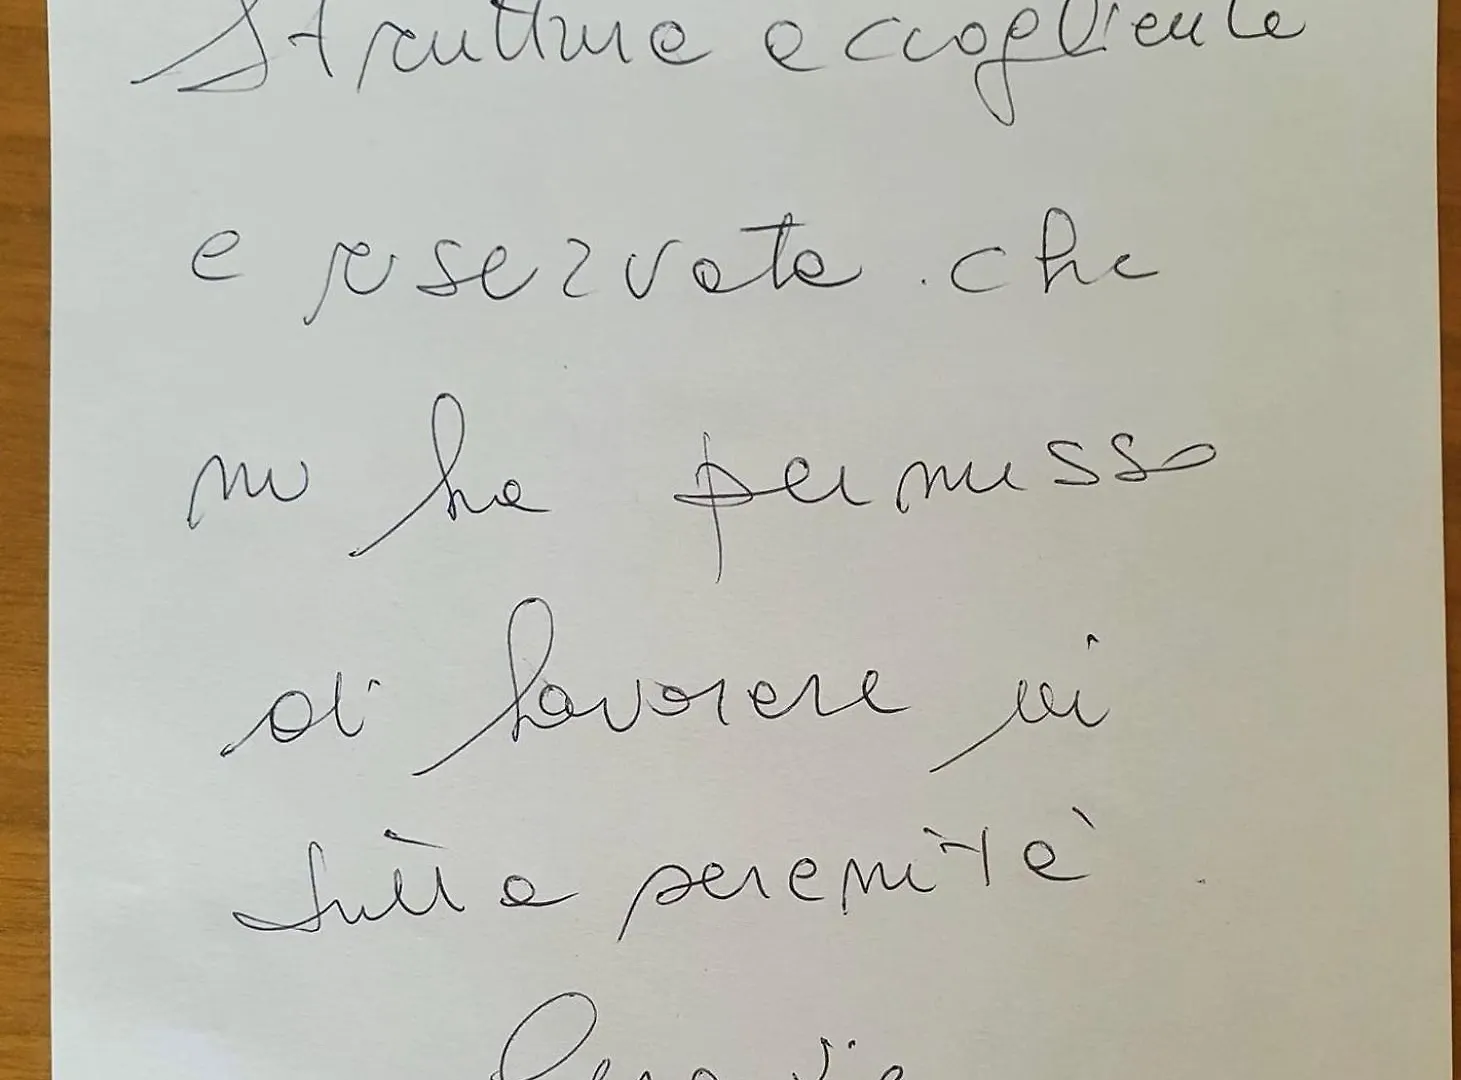 Struttura accogliente
e riservata che
mi ha permesso
di lavorare in
tutta serenità.